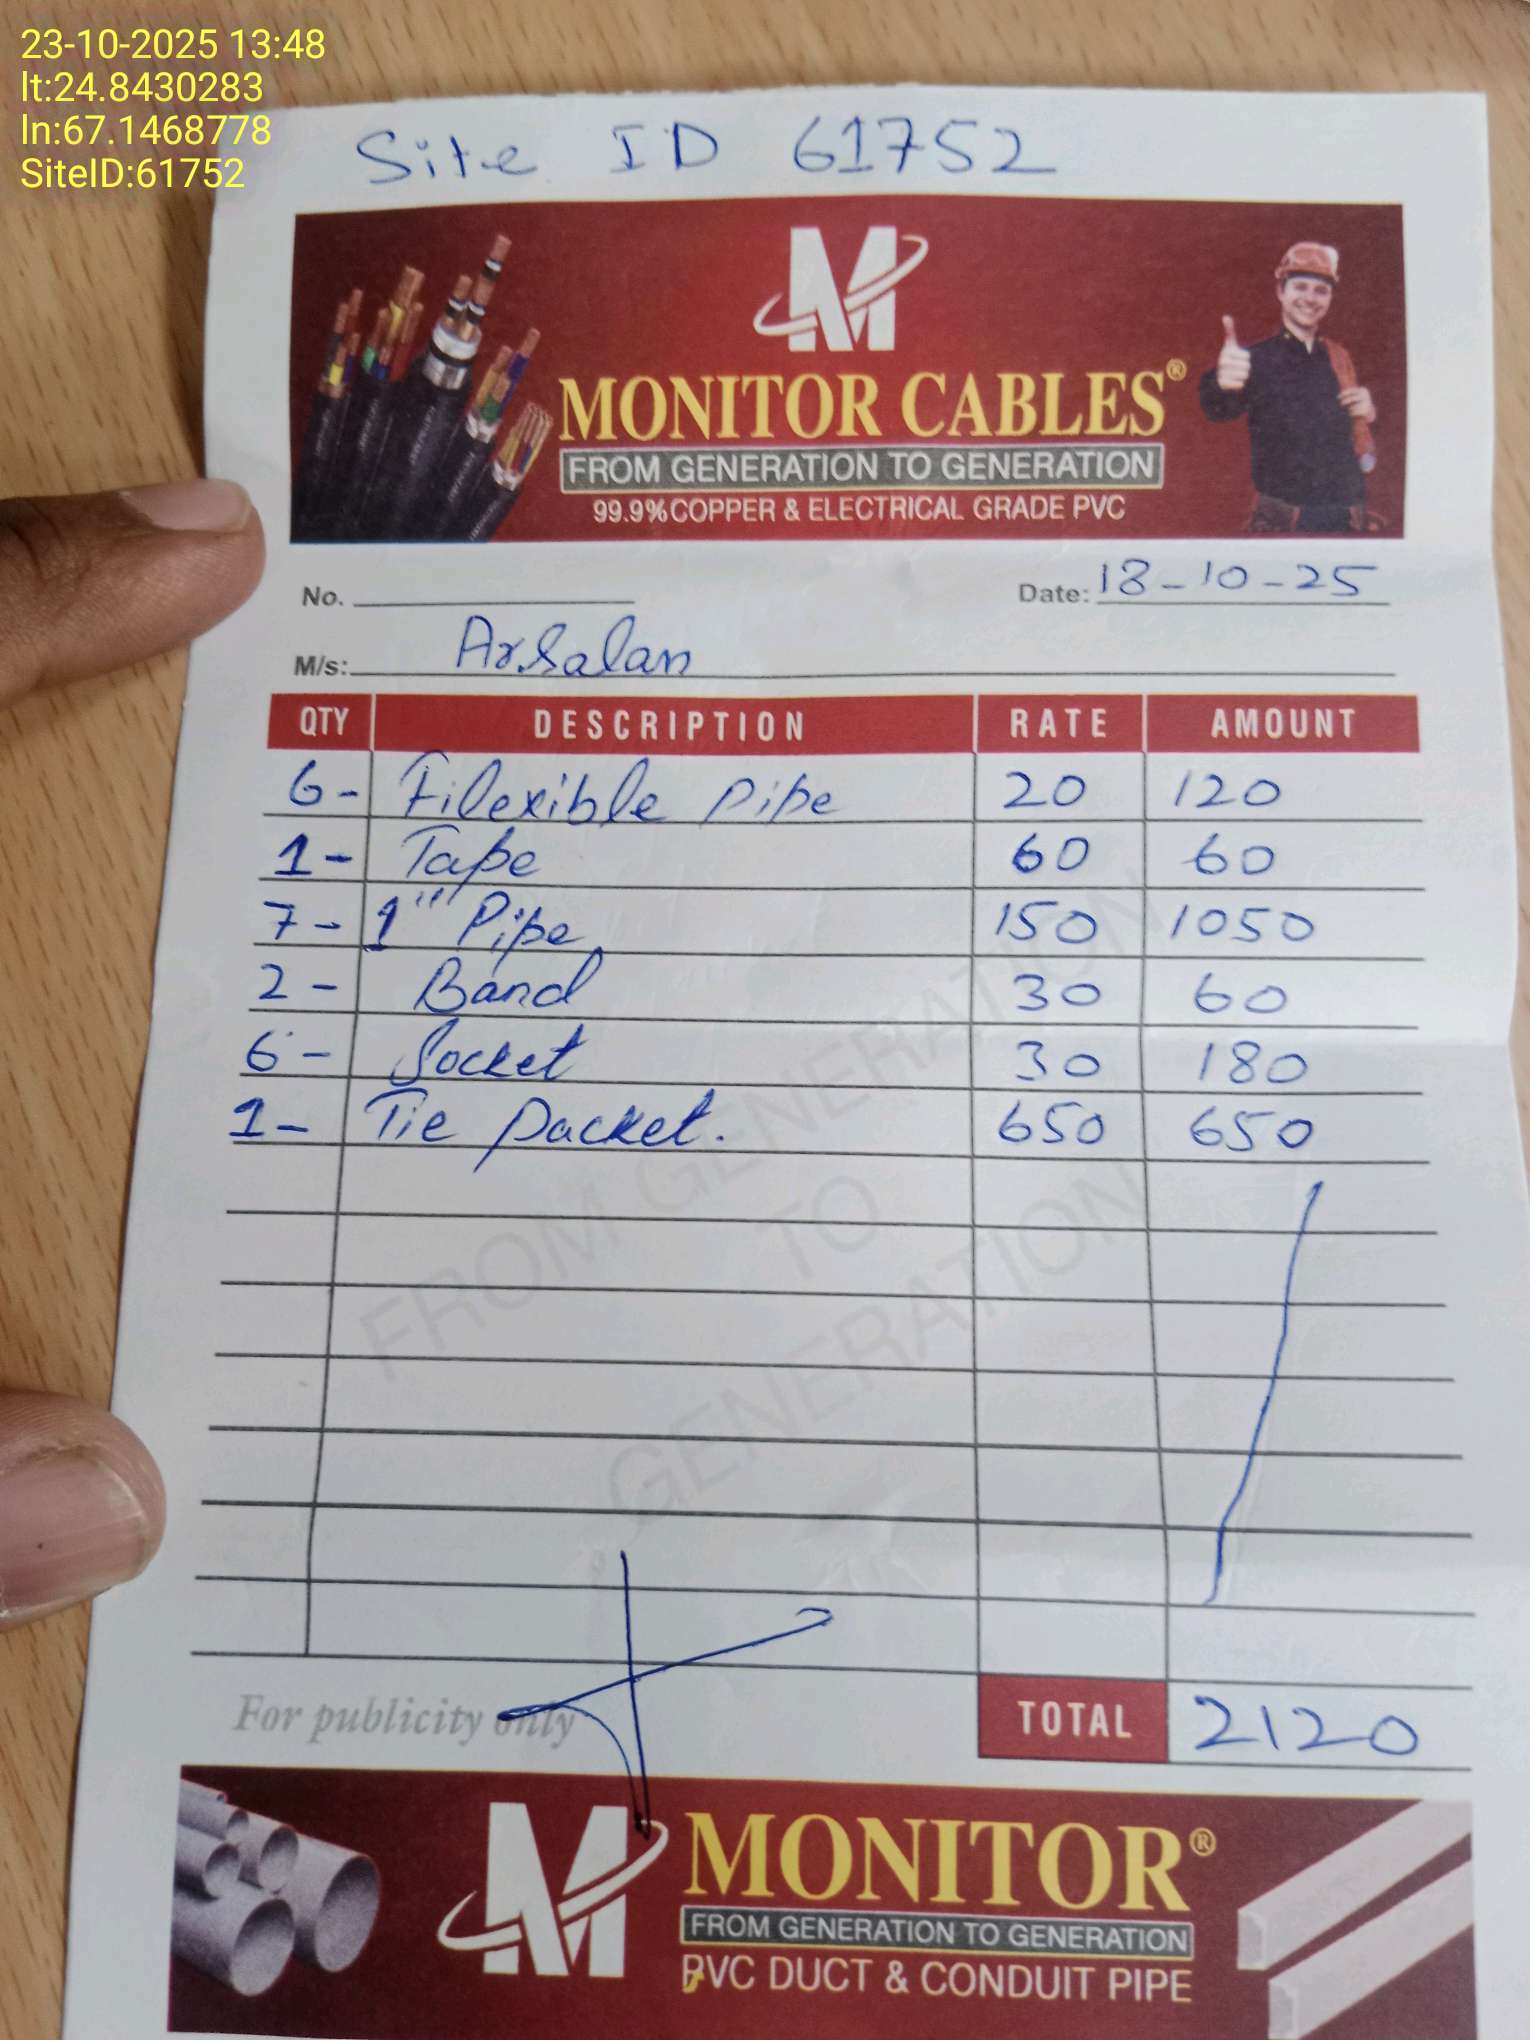 23-10-2025 13:48
lt:24.8430283
ln:67.1468778
SiteID:61752
Site ID 61752
M
MONITOR CABLES®
FROM GENERATION TO GENERATION
99.9% COPPER & ELECTRICAL GRADE PVC
No. Date: 18-10-25
M/s: Arsalan
QTY DESCRIPTION RATE AMOUNT
6- Filexible pipe 20 120
1- Tape 60 60
7- 1" Pipe 150 1050
2- Band 30 60
6- Socket 30 180
1- Tie packet. 650 650
FROM GENERATION
TO
GENERATION
For publicity only TOTAL 2120
M MONITOR®
FROM GENERATION TO GENERATION
PVC DUCT & CONDUIT PIPE